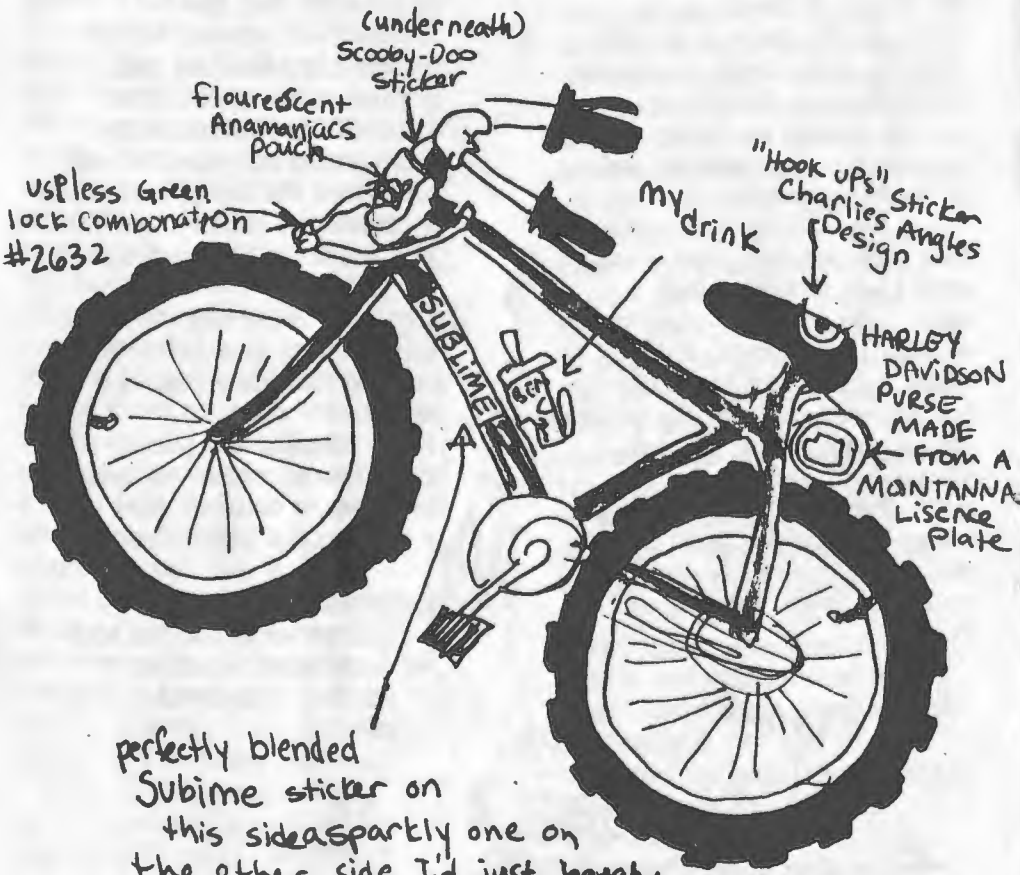 (underneath)
Scooby-Doo
sticker
flourescent
Anamanjacs
pouch
useless Green
lock combonation
#2632
my
drink
"Hook ups" Sticker
Charlies Angles
Design
HARLEY
DAVIDSON
PURSE
MADE
From A
MONTANNA
Lisence
plate
SUBLIME
perfectly blended
Subime sticker on
this side a sparkly one on
the other side I'd just bought